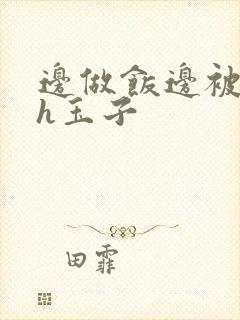 邊做飯邊被
h玉子
田霏